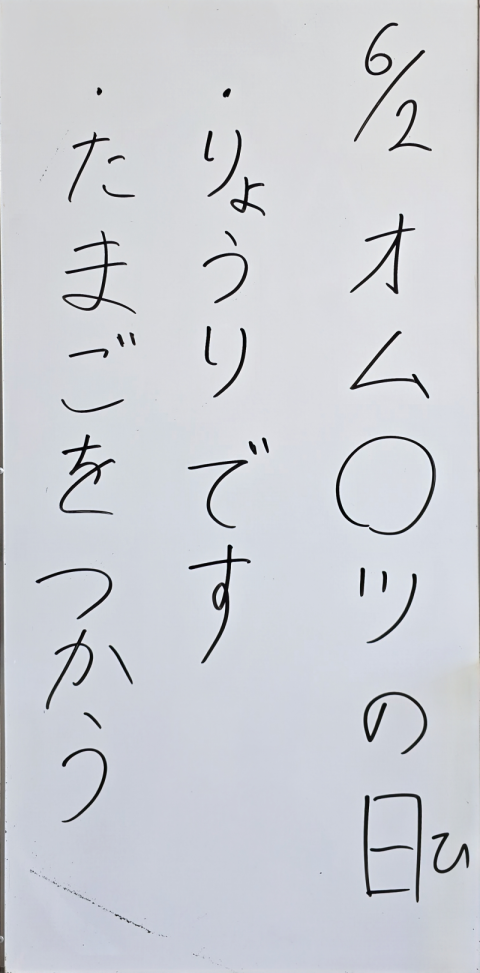 6/2 オム○ツの日ひ
・りょうりです
・たまごをつかう